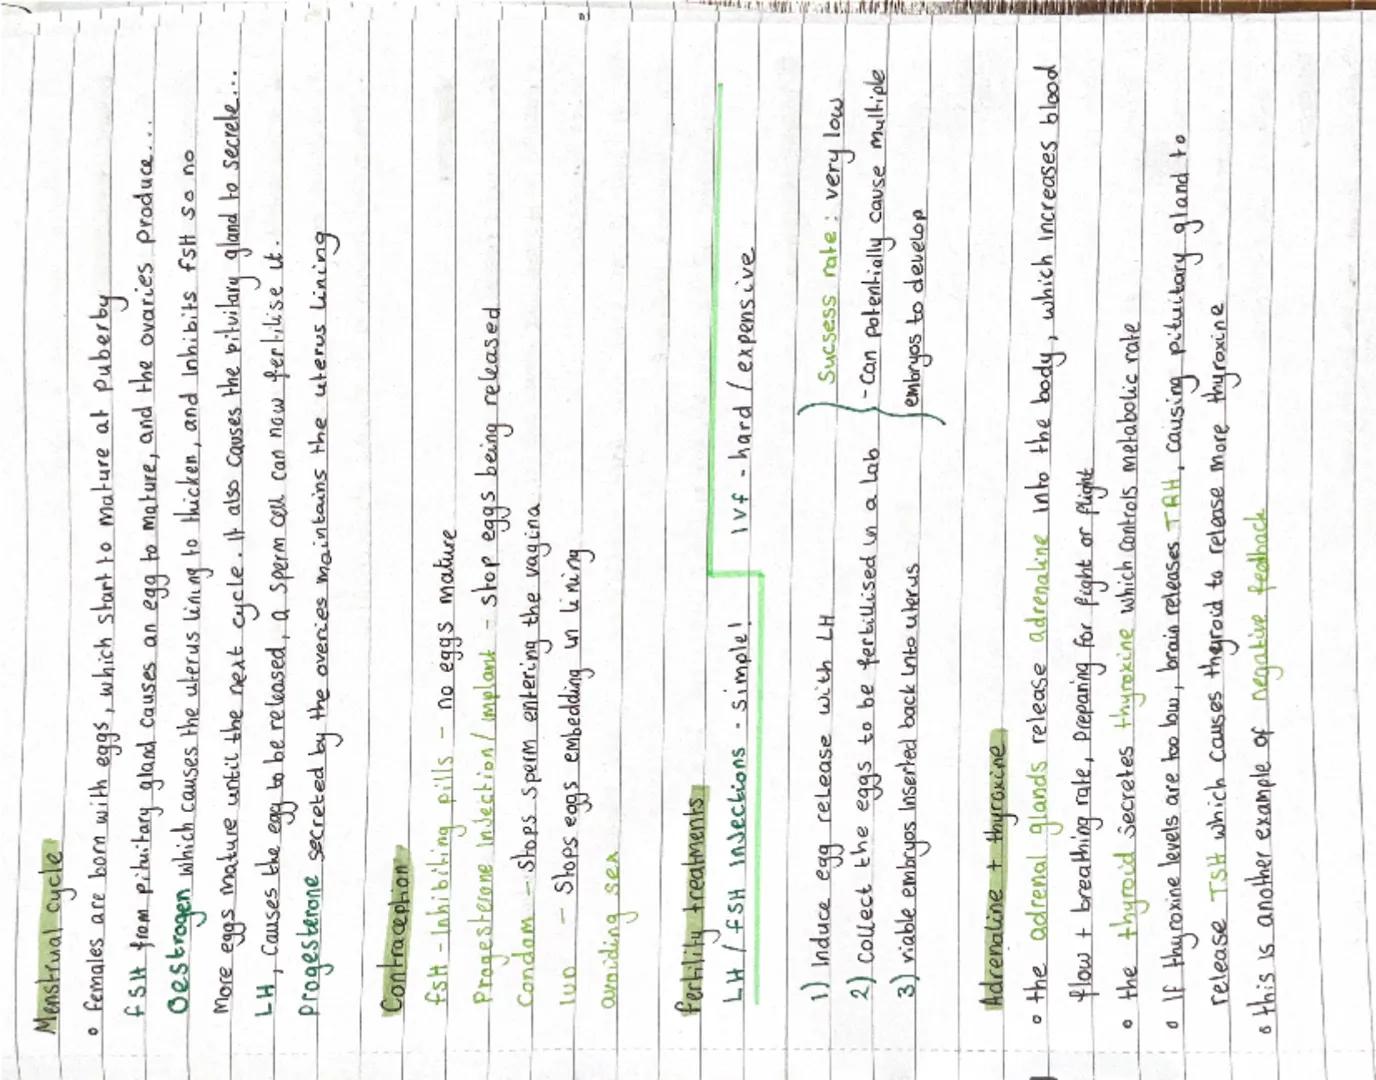 Menstrual cycle
• females are born with eggs, which start to mature at puberty
FSH from pituitary gland causes an egg to mature, and the ovaries produce...
Oestrogen which causes the uterus lining to thicken, and inhibits FSH so no
more eggs mature until the next cycle. It also causes the pituitary gland to secrete...
LH, causes the egg to be released, a sperm cell can now fertilise it.
Progesterone secreted by the overies maintains the uterus lining
Contraception
FSH - inhibiting pills - no eggs mature
Progesterone injection/implant - stop eggs being released
Condom - stops sperm entering the vagina
IUD - stops eggs embedding in lining
avoiding sex
Fertility treatments
LH / FSH injections - simple!
IVF - hard / expensive
1) Induce egg release with LH
2) Collect the eggs to be fertillised in a lab
3) viable embryos inserted back into uterus
Sucsess rate: very low
- Can potentially cause multiple
embryos to develop
Adrenaline + thyroxine
• the adrenal glands release adrenaline into the body, which increases blood
flow + breathing rate, preparing for fight or flight
• the thyroid secretes thyroxine which controls metabolic rate
• If thyroxine levels are too low, brain releases TRH, causing pituitary gland to
release TSH which causes thyroid to release more thyroxine
• this is another example of negative feedback